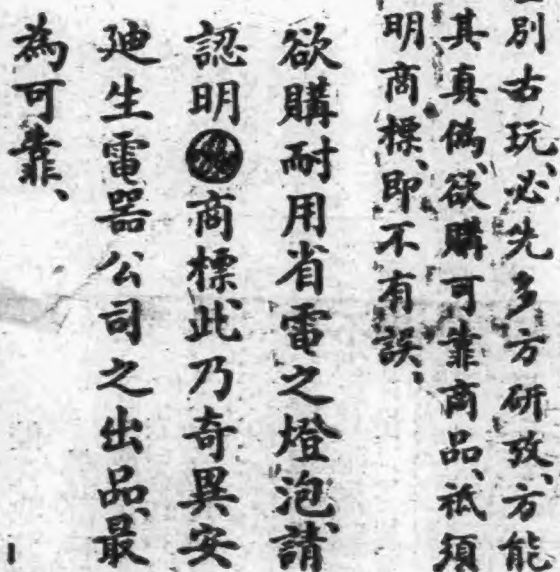 別古玩、必先多方研攷、方能
其真偽、欲購可靠商品、祗須
明商標、即不有誤、
欲購耐用省電之燈泡、請
認明商標、此乃奇異安
廸生電器公司之出品、最
為可靠、